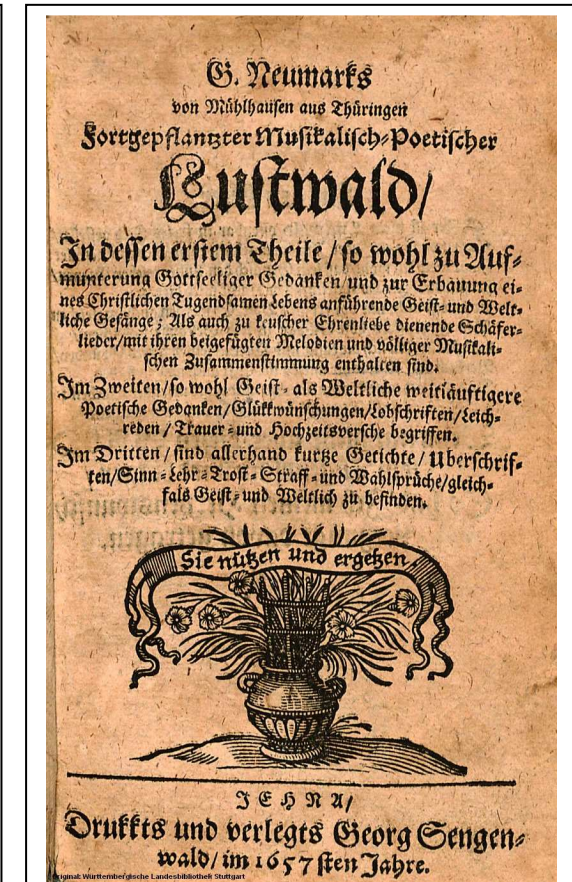 G. Neumarks
von Mühlhausen aus Thüringen
Fortgepflantzter Musikalisch-Poetischer
Lustwald/
In dessen erstem Theile / so wohl zu Auf-
munterung Gottseeliger Gedanken / und zur Erbauung ei-
nes Christlichen Tugendsamen Lebens anführende Geist- und Welt-
liche Gesänge; Als auch zu keuscher Ehrenliebe dienende Schäfer-
lieder/mit ihren beigefügten Melodien und völliger Musikali-
schen Zusammenstimmung enthalten sind.
Im Zweiten/so wohl Geist- als Weltliche weitläuftigere
Poetische Gedanken/Glükkwünschungen/Lobschriften/Leich-
reden / Trauer- und Hochzeitsversche begriffen.
Im Dritten / sind allerhand kurtze Getichte / Uberschrif-
ten/Sinn-Lehr-Trost-Straff-und Wahlsprüche/gleich-
fals Geist-und Weltlich zu befinden.
Sie nützen und ergetzen
JEHNA/
Drukkts und verlegts Georg Sengen-
wald/im 1657sten Jahre.
Original: Württembergische Landesbibliothek Stuttgart